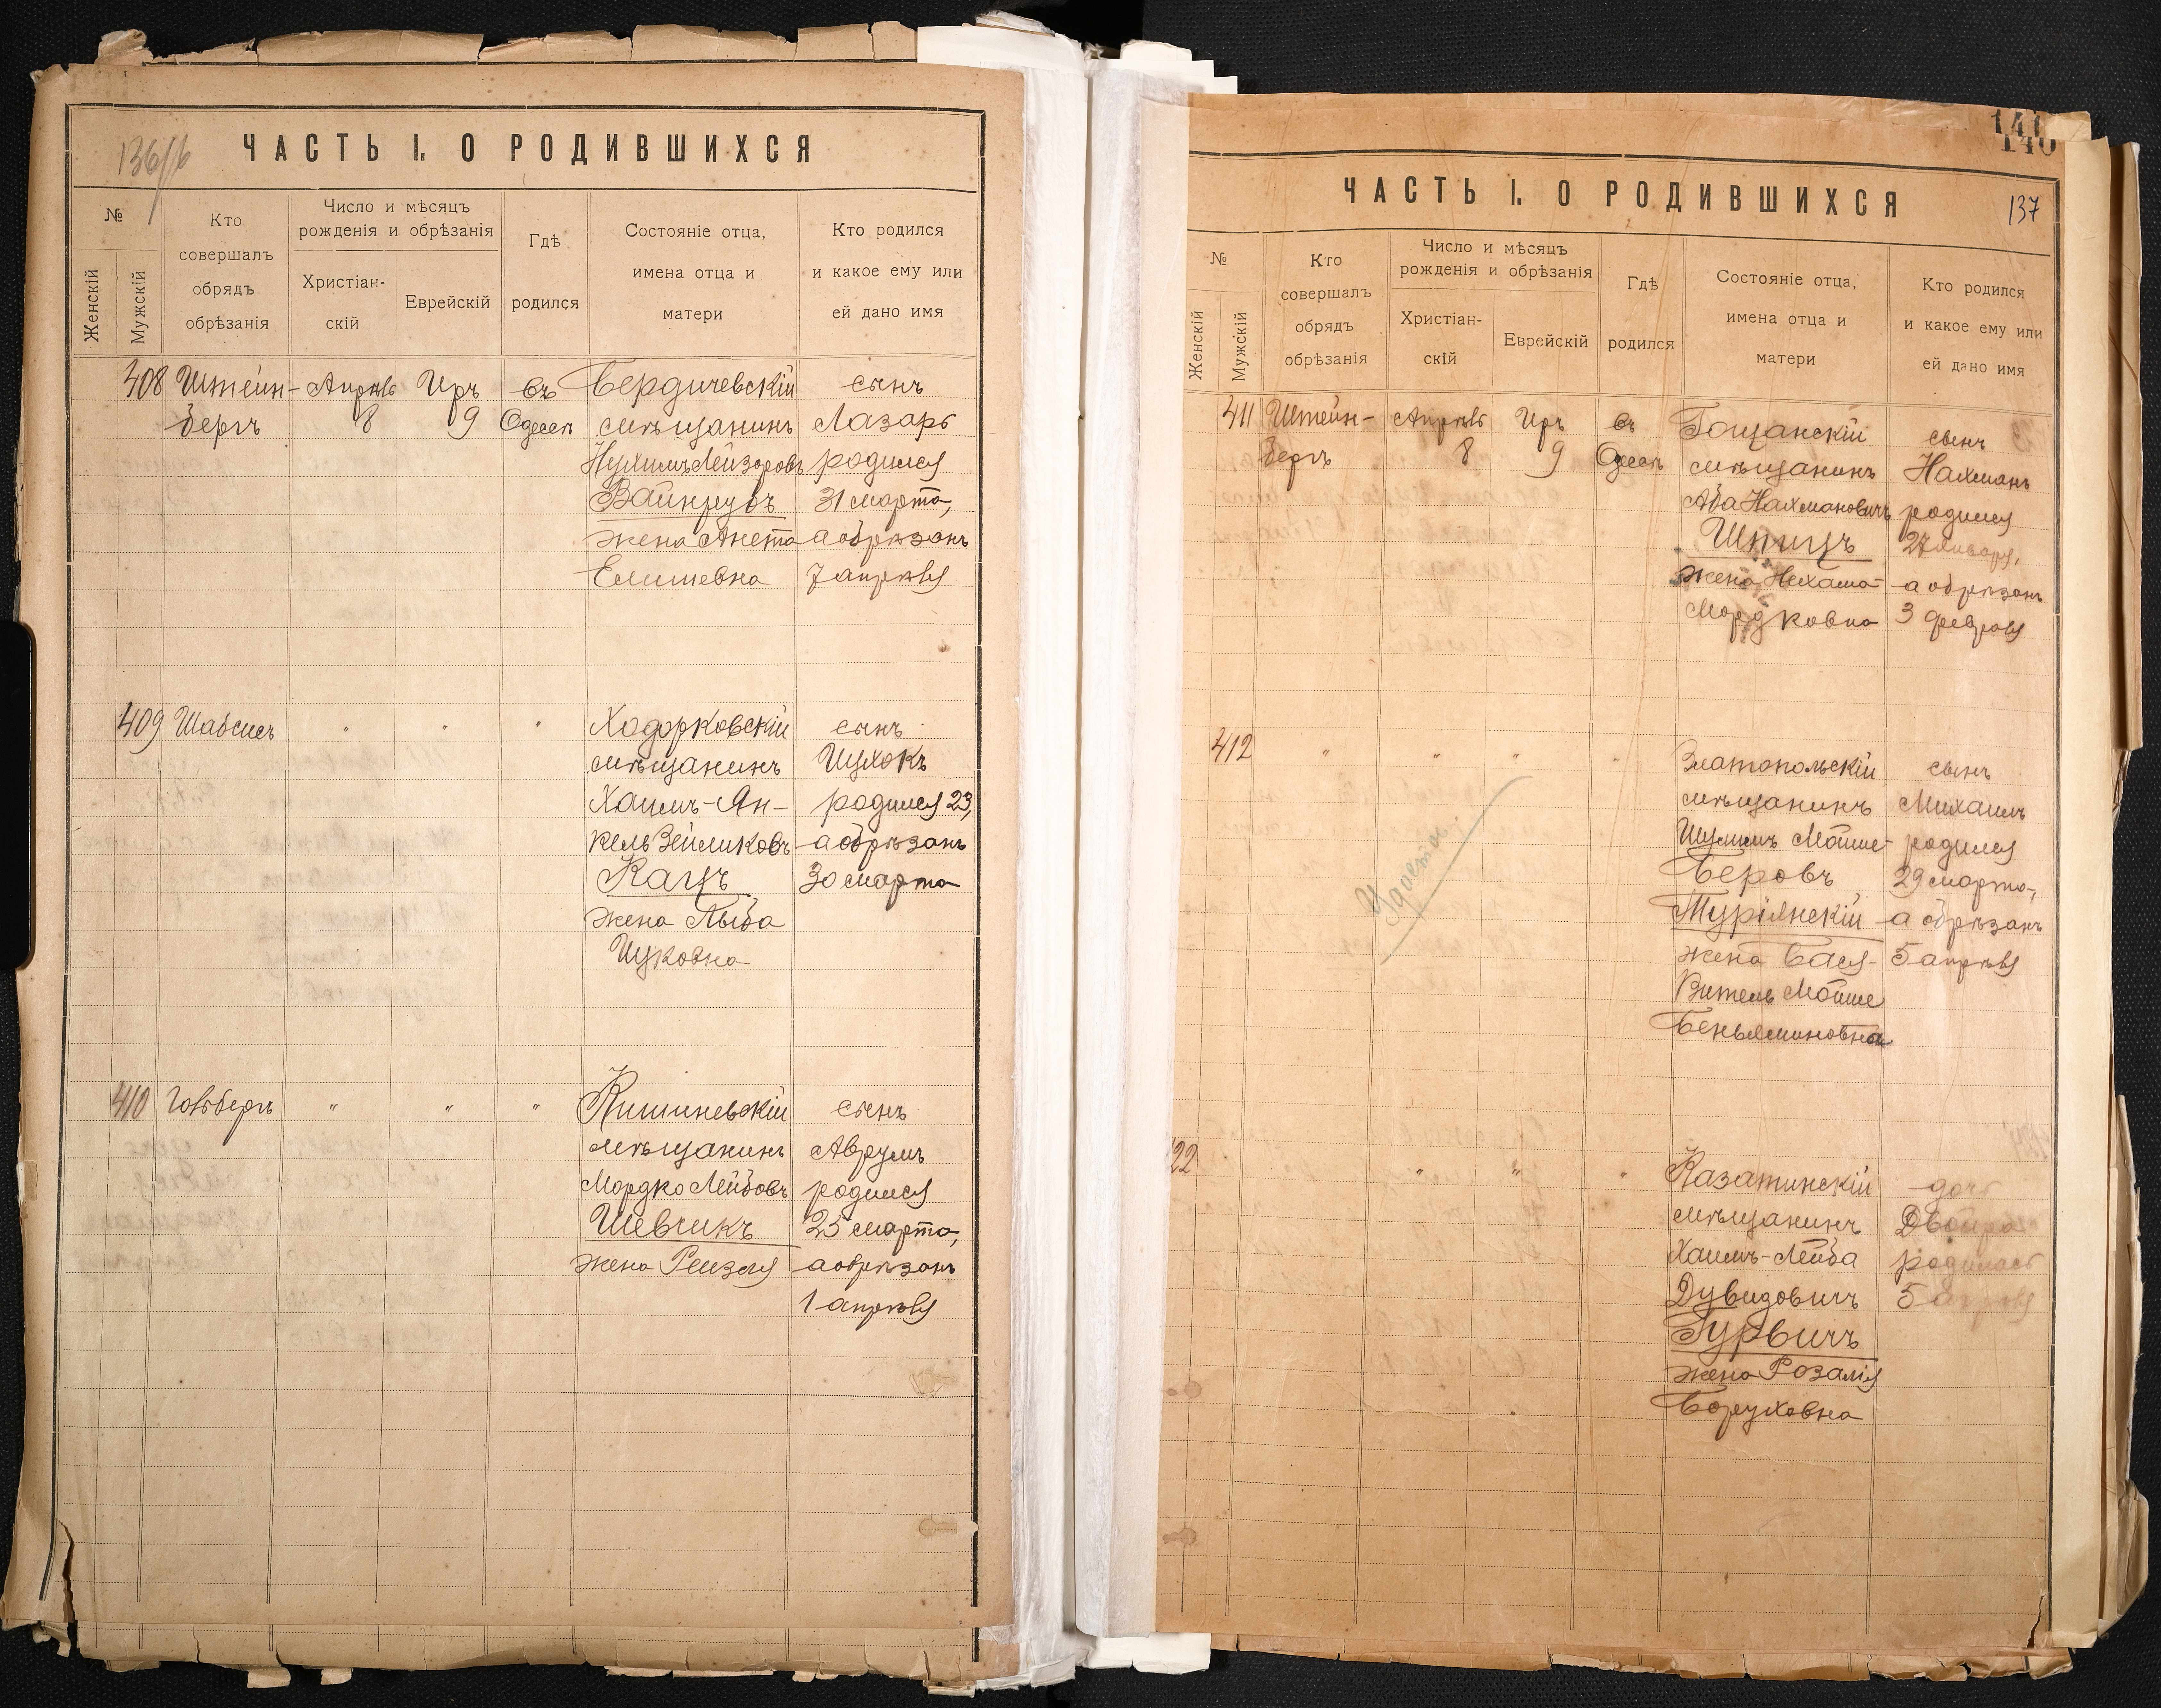 136/б
ЧАСТЬ I. О РОДИВШИХСЯ
№
Женскій
Мужскій
Кто
совершалъ
обрядъ
обрѣзанія
Число и мѣсяцъ
рожденія и обрѣзанія
Христіан-
скій
Еврейскій
Гдѣ
родился
Состояніе отца,
имена отца и
матери
Кто родился
и какое ему или
ей дано имя
408 Штейн- Апрѣль Иръ въ Бердичевскій сынъ
бергъ 8 9 Одессѣ мѣщанинъ Лазарь
Нухимъ Лейзоровъ родился
Вайнрубъ 31 марта,
жена Анета а обрѣзанъ
Елишевна 7 апрѣля
409 Шабсисъ " " " Ходорковскій сынъ
мѣщанинъ
Хаимъ-Ян- родился 23,
кель Зейликовъ а обрѣзанъ
Кацъ 30 марта
жена Хыба
Ицковна
410 Гольбергъ " " " Кишиневскій сынъ
мѣщанинъ Аврумъ
Мордко Лейбовъ родился
Шевчикъ 25 марта,
жена Рейзя а обрѣзанъ
1 апрѣля
141
140
ЧАСТЬ I. О РОДИВШИХСЯ
137
№
Женскій
Мужскій
Кто
совершалъ
обрядъ
обрѣзанія
Число и мѣсяцъ
рожденія и обрѣзанія
Христіан-
скій
Еврейскій
Гдѣ
родился
Состояніе отца,
имена отца и
матери
Кто родился
и какое ему или
ей дано имя
411 Штейн- Апрѣль Иръ въ Гощанскій сынъ
бергъ 8 9 Одессѣ мѣщанинъ Нахманъ
Аба Нахмановичъ родился
Шпицъ 27 января,
жена Нехама- а обрѣзанъ
Мордковна 3 февраля
412 " " " " Златопольскій сынъ
мѣщанинъ Михаилъ
Шулимъ Мойше- родился
Беровъ 29 марта,
Турiянскій а обрѣзанъ
жена Бася- 5 апрѣля
Витель Мойше
Беньяминовна
22 " " " Казатинскій дочь
мѣщанинъ Двойра
Хаимъ-Лейба родилась
Дувидовичъ 5 апрѣля
Гурвичъ
жена Розалія
Боруховна